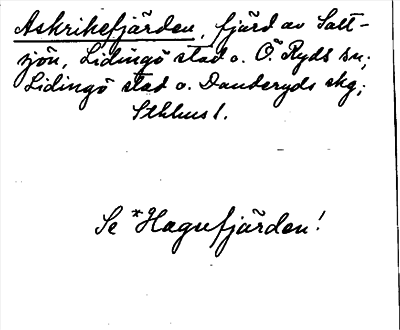 Askrikefjärden, fjärd av Salt-
sjön, Lidingö stad o. Ö. Ryds sn;
Lidingö stad o. Danderyds skg;
Sthlms l.
Se *Hagufjärden!